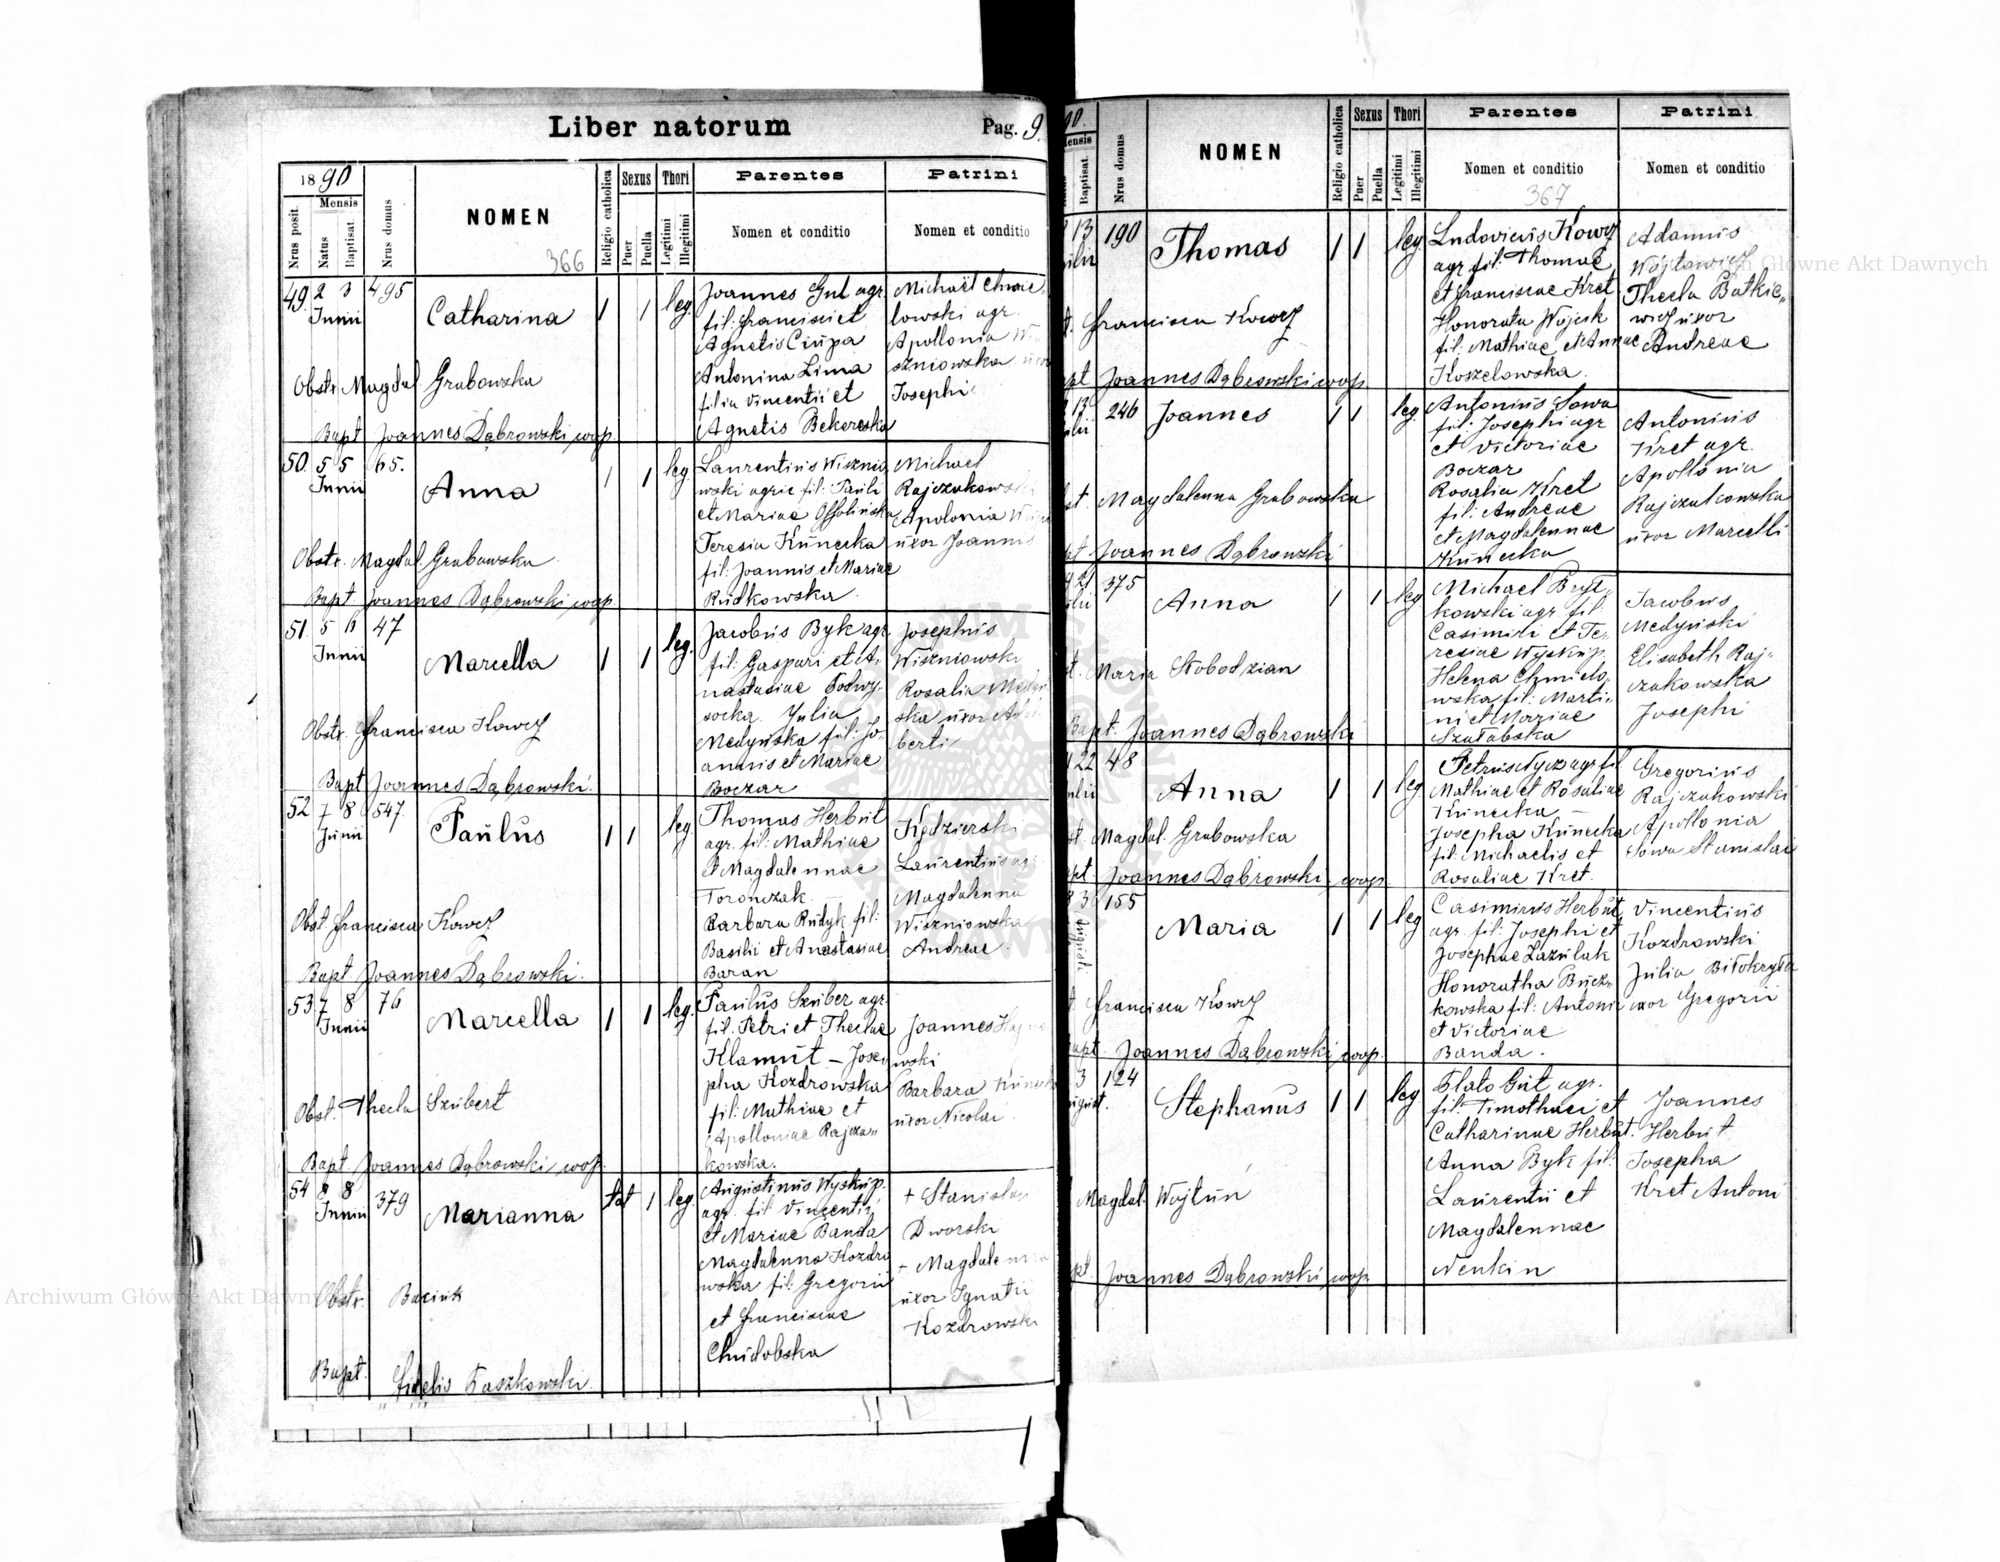 Liber natorum
Pag. 9.
1890
Nrus posit.
Mensis
Natus
Baptisat.
Nrus domus
NOMEN
366
Religio catholica
Sexus
Puer
Puella
Thori
Legitimi
Illegitimi
Parentes
Nomen et conditio
Patrini
Nomen et conditio
49. 2 3 Junii 495
Catharina
1 1 leg.
Joannes Gul agr.
fil: Francisci et
Agnetis Ciupa
Antonina Lima
filia Vincentii et
Agnetis Bekerska
Michaël Chmie„
lowski agr.
Apollonia Wi
szniowska uxor
Josephi
Obstr. Magdal Grabowska
Bapt Joannes Dąbrowski coop.
50. 5 5 Junii 65.
Anna
1 1 leg.
Laurentius Wisznio
wski agric fil: Pauli
et Mariae Ossolińska
Teresia Kunecka
fil: Joannis et Mariae
Rudkowska.
Michael
Rajczakowski
Apolonia
uxor Joannis
Obstr. Magdal. Grabowska
Bapt Joannes Dąbrowski coop.
51 5 6 Junii 47
Marcella
1 1 leg.
Jacobus Byk agr
fil: Gaspari et A„
nastasiae Podwy„
socka. Julia
Medyńska fil: Jo„
annis et Mariae
Boczar
Josephus
Wiszniowski
Rosalia Medyń
ska uxor Adal
berti
Obstr. Francisca Kowcz
Bapt Joannes Dąbrowski.
52 7 8 Junii 547.
Paulus
1 1 leg.
Thomas Herbut
agr. fil: Mathiae
et Magdalennae
Toronczak. —
Barbara Rudyk fil:
Basilii et Anastasiae
Baran
Kędzierski
Laurentius agr.
Magdalenna
Wiszniowska
Andreae.
Obst. Francisca Kowcz
Bapt Joannes Dąbrowski.
53. 7 8 Junii 76
Marcella
1 1 leg.
Paulus Szuber agr
fil: Petri et Theclae
Klamut — Jose„
pha Kozdrowska
fil: Mathiae et
Apolloniae Rajcza„
kowska.
Joannes
wski
Barbara Kunecka
uxor Nicolai
Obst. Thecla Szubert
Bapt Joannes Dąbrowski coop.
54 8 8 Junii 379
Marianna
1 leg.
Augustinus Wyskup.
agr. fil Vincentii
et Mariae Banda
Magdalenna Kozdro
wska fil: Gregorii
et Franciscae
Chudobska
+ Stanislai
Dworski
+ Magdalenna
uxor Ignatii
Kozdrowski
Obstr. Baciuk
Bapt. Fidelis Paszkowski.
90.
Mensis
Baptisat.
Nrus domus
NOMEN
Religio catholica
Sexus
Puer
Puella
Thori
Legitimi
Illegitimi
Parentes
Nomen et conditio
367
Patrini
Nomen et conditio
13 190
Thomas
1 1 leg.
Ludovicus Kowcz
agr fil: Thomae
et Franciscae Kret
Honorata Wójcik
fil: Mathiae et Annae
Koszelowska.
Adamus
Wojtowicz
Thecla Batkie„
wicz uxor
Andreae
Francisca Kowcz
Joannes Dąbrowski coop
17 246
Joannes
1 1 leg.
Antonius Sowa
fil: Josephi agr
et Victoriae
Boczar
Rosalia Kret
fil: Andreae
et Magdalennae
Kunecka
Antonius
Kret agr.
Apollonia
Rajczakowska
uxor Marcelli
Magdalenna Grabowska
Joannes Dąbrowski
21 375
Anna
1 1 leg
Michael Bryt„
kowski agr fil:
Casimiri et Te„
resiae Wyskup.
Helena Chmielo„
wska fil: Marti„
ni et Mariae
Szałabska
Jacobus
Medyński
Elisabeth Raj„
czakowska
Josephi
Maria Słobodzian
Bapt. Joannes Dąbrowski
22 48
Anna
1 1 leg
Petrus Nycz agr fil
Mathiae et Rosaliae
Kunecka —
Josepha Kunecka
fil: Michaelis et
Rosaliae Kret.
Gregorius
Rajczakowski
Apollonia
Sowa Stanislai
Magdal. Grabowska
Joannes Dąbrowski coop
3 Augusti 155
Maria
1 1 leg
Casimirus Herbut
agr. fil: Josephi et
Josephae Lazulak
Honoratha Bucz„
kowska fil: Antonii
et Victoriae
Banda.
Vincentius
Kozdrowski
Julia Biłokryła
uxor Gregorii
Francisca Kowcz
Bapt Joannes Dąbrowski coop.
3 124
Stephanus
1 1 leg
Plato Gut agr.
fil: Timothaei et
Catharinae Herbut.
Anna Byk fil:
Laurentii et
Magdalennae
Nenkin
Joannes
Herbut
Josepha
Kret Antoni
Magdal. Wojtuń
Joannes Dąbrowski coop
Archiwum Główne Akt Dawnych
Archiwum Główne Akt Dawnych